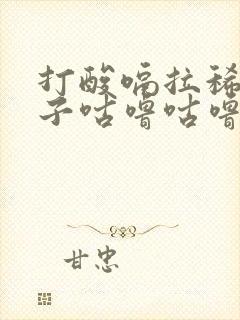 打酸嗝拉稀
子咕噜咕噜
甘忠